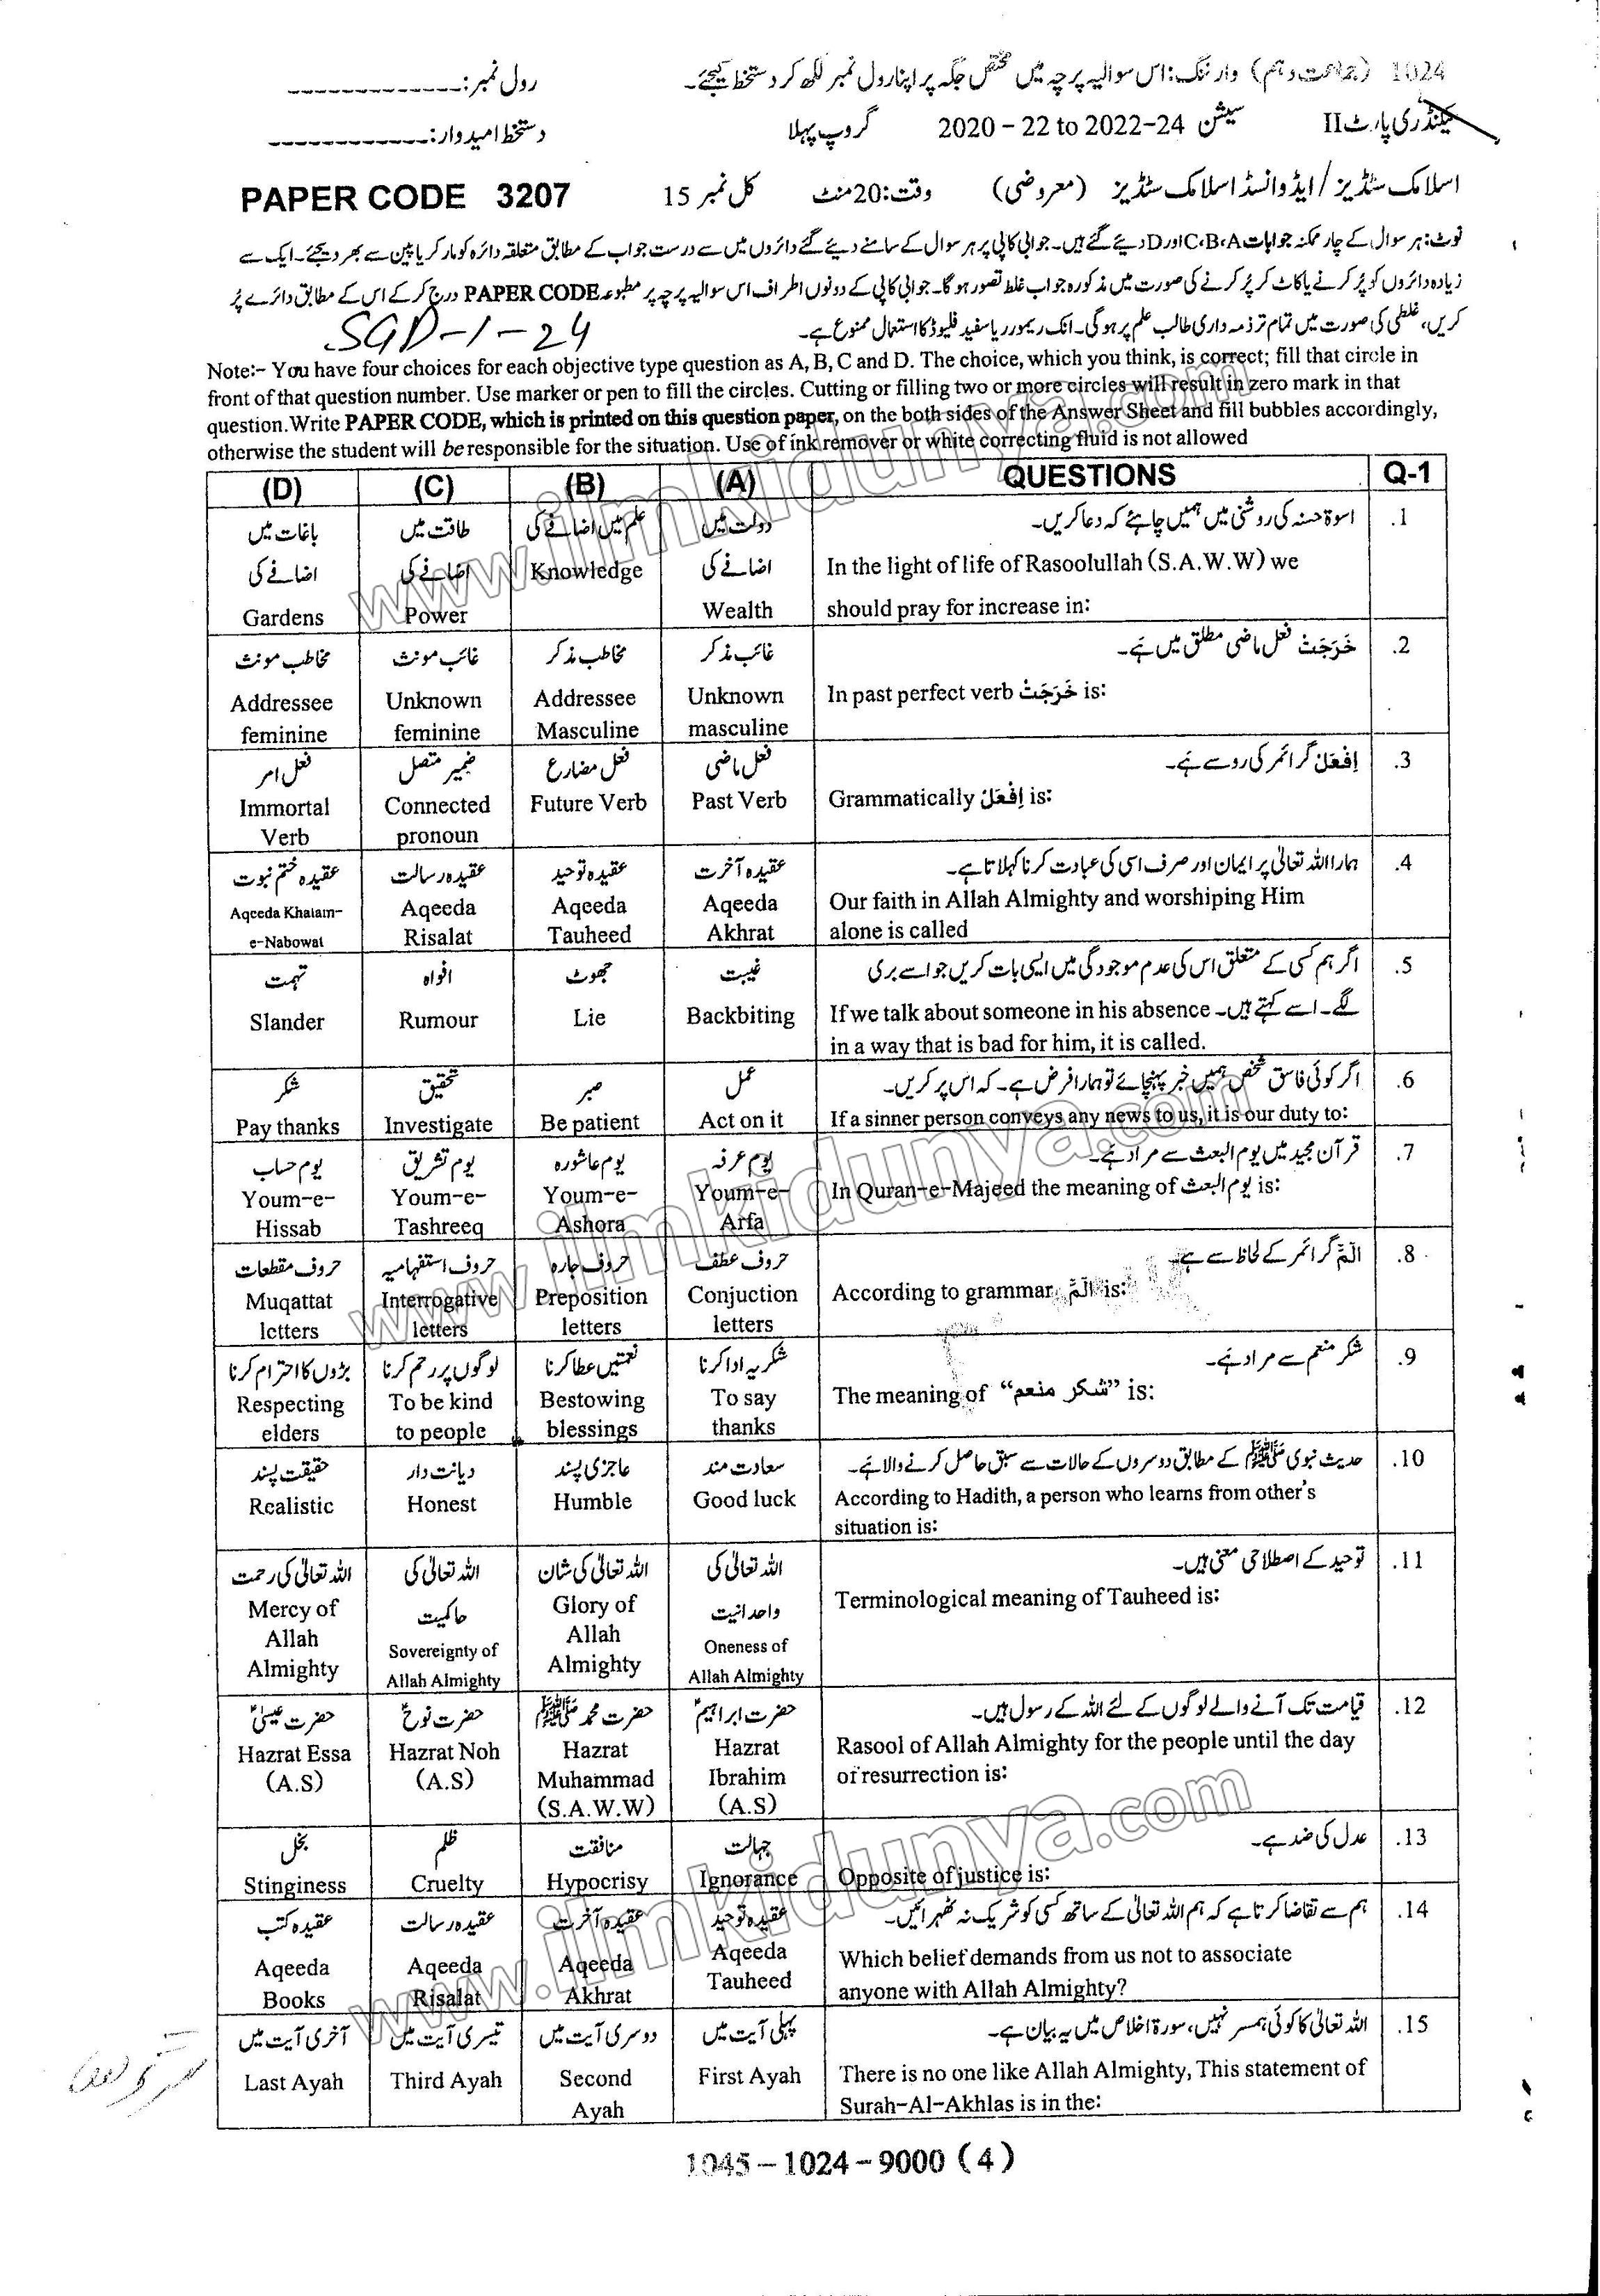 1024 (جماعت دہم) وارننگ: اس سوالیہ پرچہ میں مختص جگہ پر اپنا رول نمبر لکھ کر دستخط کیجئے۔ رول نمبر: ------------
سیکنڈری پارٹ II سیشن 2020 - 22 to 2022-24 گروپ پہلا دستخط امیدوار: ------------
اسلامک سٹڈیز / ایڈوانسڈ اسلامک سٹڈیز (معروضی) وقت: 20 منٹ کل نمبر 15 PAPER CODE 3207
نوٹ: ہر سوال کے چار ممکنہ جوابات A،B،C اور D دیئے گئے ہیں۔ جوابی کاپی پر ہر سوال کے سامنے دیئے گئے دائروں میں سے درست جواب کے مطابق متعلقہ دائرہ کو مارکر یا پین سے بھر دیجئے۔ ایک سے
زیادہ دائروں کو پُر کرنے یا کاٹ کر پُر کرنے کی صورت میں مذکورہ جواب غلط تصور ہوگا۔ جوابی کاپی کے دونوں اطراف اس سوالیہ پرچہ پر مطبوعہ PAPER CODE درج کر کے اس کے مطابق دائرے پُر
کریں، غلطی کی صورت میں تمام تر ذمہ داری طالب علم پر ہوگی۔ انک ریموور یا سفید فلیوڈ کا استعمال ممنوع ہے۔
SGD-1-24
Note:- You have four choices for each objective type question as A, B, C and D. The choice, which you think, is correct; fill that circle in
front of that question number. Use marker or pen to fill the circles. Cutting or filling two or more circles will result in zero mark in that
question. Write PAPER CODE, which is printed on this question paper, on the both sides of the Answer Sheet and fill bubbles accordingly,
otherwise the student will be responsible for the situation. Use of ink remover or white correcting fluid is not allowed
(D) (C) (B) (A) QUESTIONS Q-1
باغات میں طاقت میں علم میں اضافے کی دولت میں اسوۃ حسنہ کی روشنی میں ہمیں چاہئے کہ دعا کریں۔ .1
اضافے کی اضافے کی Knowledge اضافے کی In the light of life of Rasoolullah (S.A.W.W) we
Gardens Power Wealth should pray for increase in:
مخاطب مونث غائب مونث مخاطب مذکر غائب مذکر خَرَجَتْ فعل ماضی مطلق میں ہے۔ .2
Addressee Unknown Addressee Unknown In past perfect verb خَرَجَتْ is:
feminine feminine Masculine masculine
فعل امر ضمیر متصل فعل مضارع فعل ماضی اِفْعَلْ گرائمر کی رو سے ہے۔ .3
Immortal Connected Future Verb Past Verb Grammatically اِفْعَلْ is:
Verb pronoun
عقیدہ ختم نبوت عقیدہ رسالت عقیدہ توحید عقیدہ آخرت ہمارا اللہ تعالیٰ پر ایمان اور صرف اسی کی عبادت کرنا کہلاتا ہے۔ .4
Aqeeda Khatam- Aqeeda Aqeeda Aqeeda Our faith in Allah Almighty and worshiping Him
e-Nabowat Risalat Tauheed Akhrat alone is called
تہمت افواہ جھوٹ غیبت اگر ہم کسی کے متعلق اس کی عدم موجودگی میں ایسی بات کریں جو اسے بری .5
Slander Rumour Lie Backbiting لگے۔ اسے کہتے ہیں۔ If we talk about someone in his absence
in a way that is bad for him, it is called.
شکر تحقیق صبر عمل اگر کوئی فاسق شخص ہمیں خبر پہنچائے تو ہمارا فرض ہے۔ کہ اس پر کریں۔ .6
Pay thanks Investigate Be patient Act on it If a sinner person conveys any news to us, it is our duty to:
یوم حساب یوم تشریق یوم عاشورہ یوم عرفہ قرآن مجید میں یوم البعث سے مراد ہے۔ .7
Youm-e- Youm-e- Youm-e- Youm-e- In Quran-e-Majeed the meaning of یوم البعث is:
Hissab Tashreeq Ashora Arfa
حروف مقطعات حروف استفہامیہ حروف جارہ حروف عطف الٓمّٓ گرائمر کے لحاظ سے ہے۔ .8
Muqattat Interrogative Preposition Conjuction According to grammar, الٓمّٓ is:
letters letters letters letters
بڑوں کا احترام کرنا لوگوں پر رحم کرنا نعمتیں عطا کرنا شکریہ ادا کرنا شکر منعم سے مراد ہے۔ .9
Respecting To be kind Bestowing To say The meaning of “شکر منعم” is:
elders to people blessings thanks
حقیقت پسند دیانت دار عاجزی پسند سعادت مند حدیث نبوی ﷺ کے مطابق دوسروں کے حالات سے سبق حاصل کرنے والا ہے۔ .10
Realistic Honest Humble Good luck According to Hadith, a person who learns from other's
situation is:
اللہ تعالیٰ کی رحمت اللہ تعالیٰ کی اللہ تعالیٰ کی شان اللہ تعالیٰ کی توحید کے اصطلاحی معنی ہیں۔ .11
Mercy of حاکمیت Glory of واحدانیت Terminological meaning of Tauheed is:
Allah Sovereignty of Allah Oneness of
Almighty Allah Almighty Almighty Allah Almighty
حضرت عیسیٰؑ حضرت نوحؑ حضرت محمد ﷺ حضرت ابراہیمؑ قیامت تک آنے والے لوگوں کے لئے اللہ کے رسول ہیں۔ .12
Hazrat Essa Hazrat Noh Hazrat Hazrat Rasool of Allah Almighty for the people until the day
(A.S) (A.S) Muhammad Ibrahim of resurrection is:
(S.A.W.W) (A.S)
بخل ظلم منافقت جہالت عدل کی ضد ہے۔ .13
Stinginess Cruelty Hypocrisy Ignorance Opposite of justice is:
عقیدہ کتب عقیدہ رسالت عقیدہ آخرت عقیدہ توحید ہم سے تقاضا کرتا ہے کہ ہم اللہ تعالیٰ کے ساتھ کسی کو شریک نہ ٹھہرائیں۔ .14
Aqeeda Aqeeda Aqeeda Aqeeda Which belief demands from us not to associate
Books Risalat Akhrat Tauheed anyone with Allah Almighty?
آخری آیت میں تیسری آیت میں دوسری آیت میں پہلی آیت میں اللہ تعالیٰ کا کوئی ہمسر نہیں، سورۃ اخلاص میں یہ بیان ہے۔ .15
Last Ayah Third Ayah Second First Ayah There is no one like Allah Almighty, This statement of
Ayah Surah-Al-Akhlas is in the:
1045 - 1024 - 9000 (4)
www.ilmkidunya.com
www.ilmkidunya.com
www.ilmkidunya.com